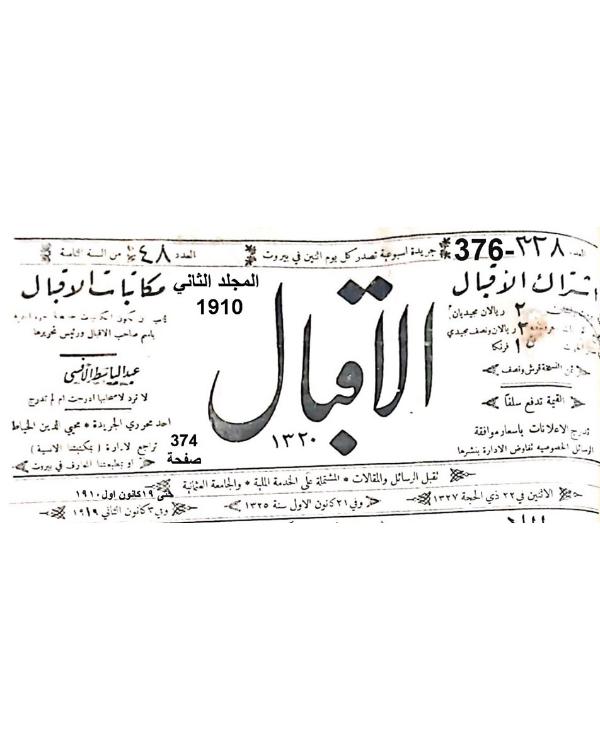 العدد ٣٢٨-376
جريدة اسبوعية تصدر كل يوم اثنين في بيروت
العدد ٤٨ من السنة الثامنة
اشتراك الاقبال
٢ ريالان مجيديان
٢ ريالان ونصف مجيدي
فرنكا
ثمن النسخة قرش ونصف
القيمة تدفع سلفًا
تدرج الاعلانات باسعار موافقة
الرسائل الخصوصيه تفاوض الادارة بنشرها
المجلد الثاني
1910
الاقبال
١٣٢٠
مكاتبات الاقبال
باسم صاحب الاقبال ورئيس تحريرها
عبد الباسط الأنسي
لا ترد لاصحابها ادرجت ام لم تدرج
احد محرري الجريدة * محيي الدين الخياط
تراجع لادارة (بمكتبتنا الانسية)
او بمطبعتنا المعارف في بيروت
374
صفحة
تقبل الرسائل والمقالات * المشتملة على الخدمة الملية * والجامعة العثمانية
حتى ١٩ كانون اول ١٩١٠
الاثنين في ٢٢ ذي الحجة ١٣٢٧
وفي ٢١ كانون الاول سنة ١٣٢٥
وفي ٣ كانون الثاني ١٩١٩